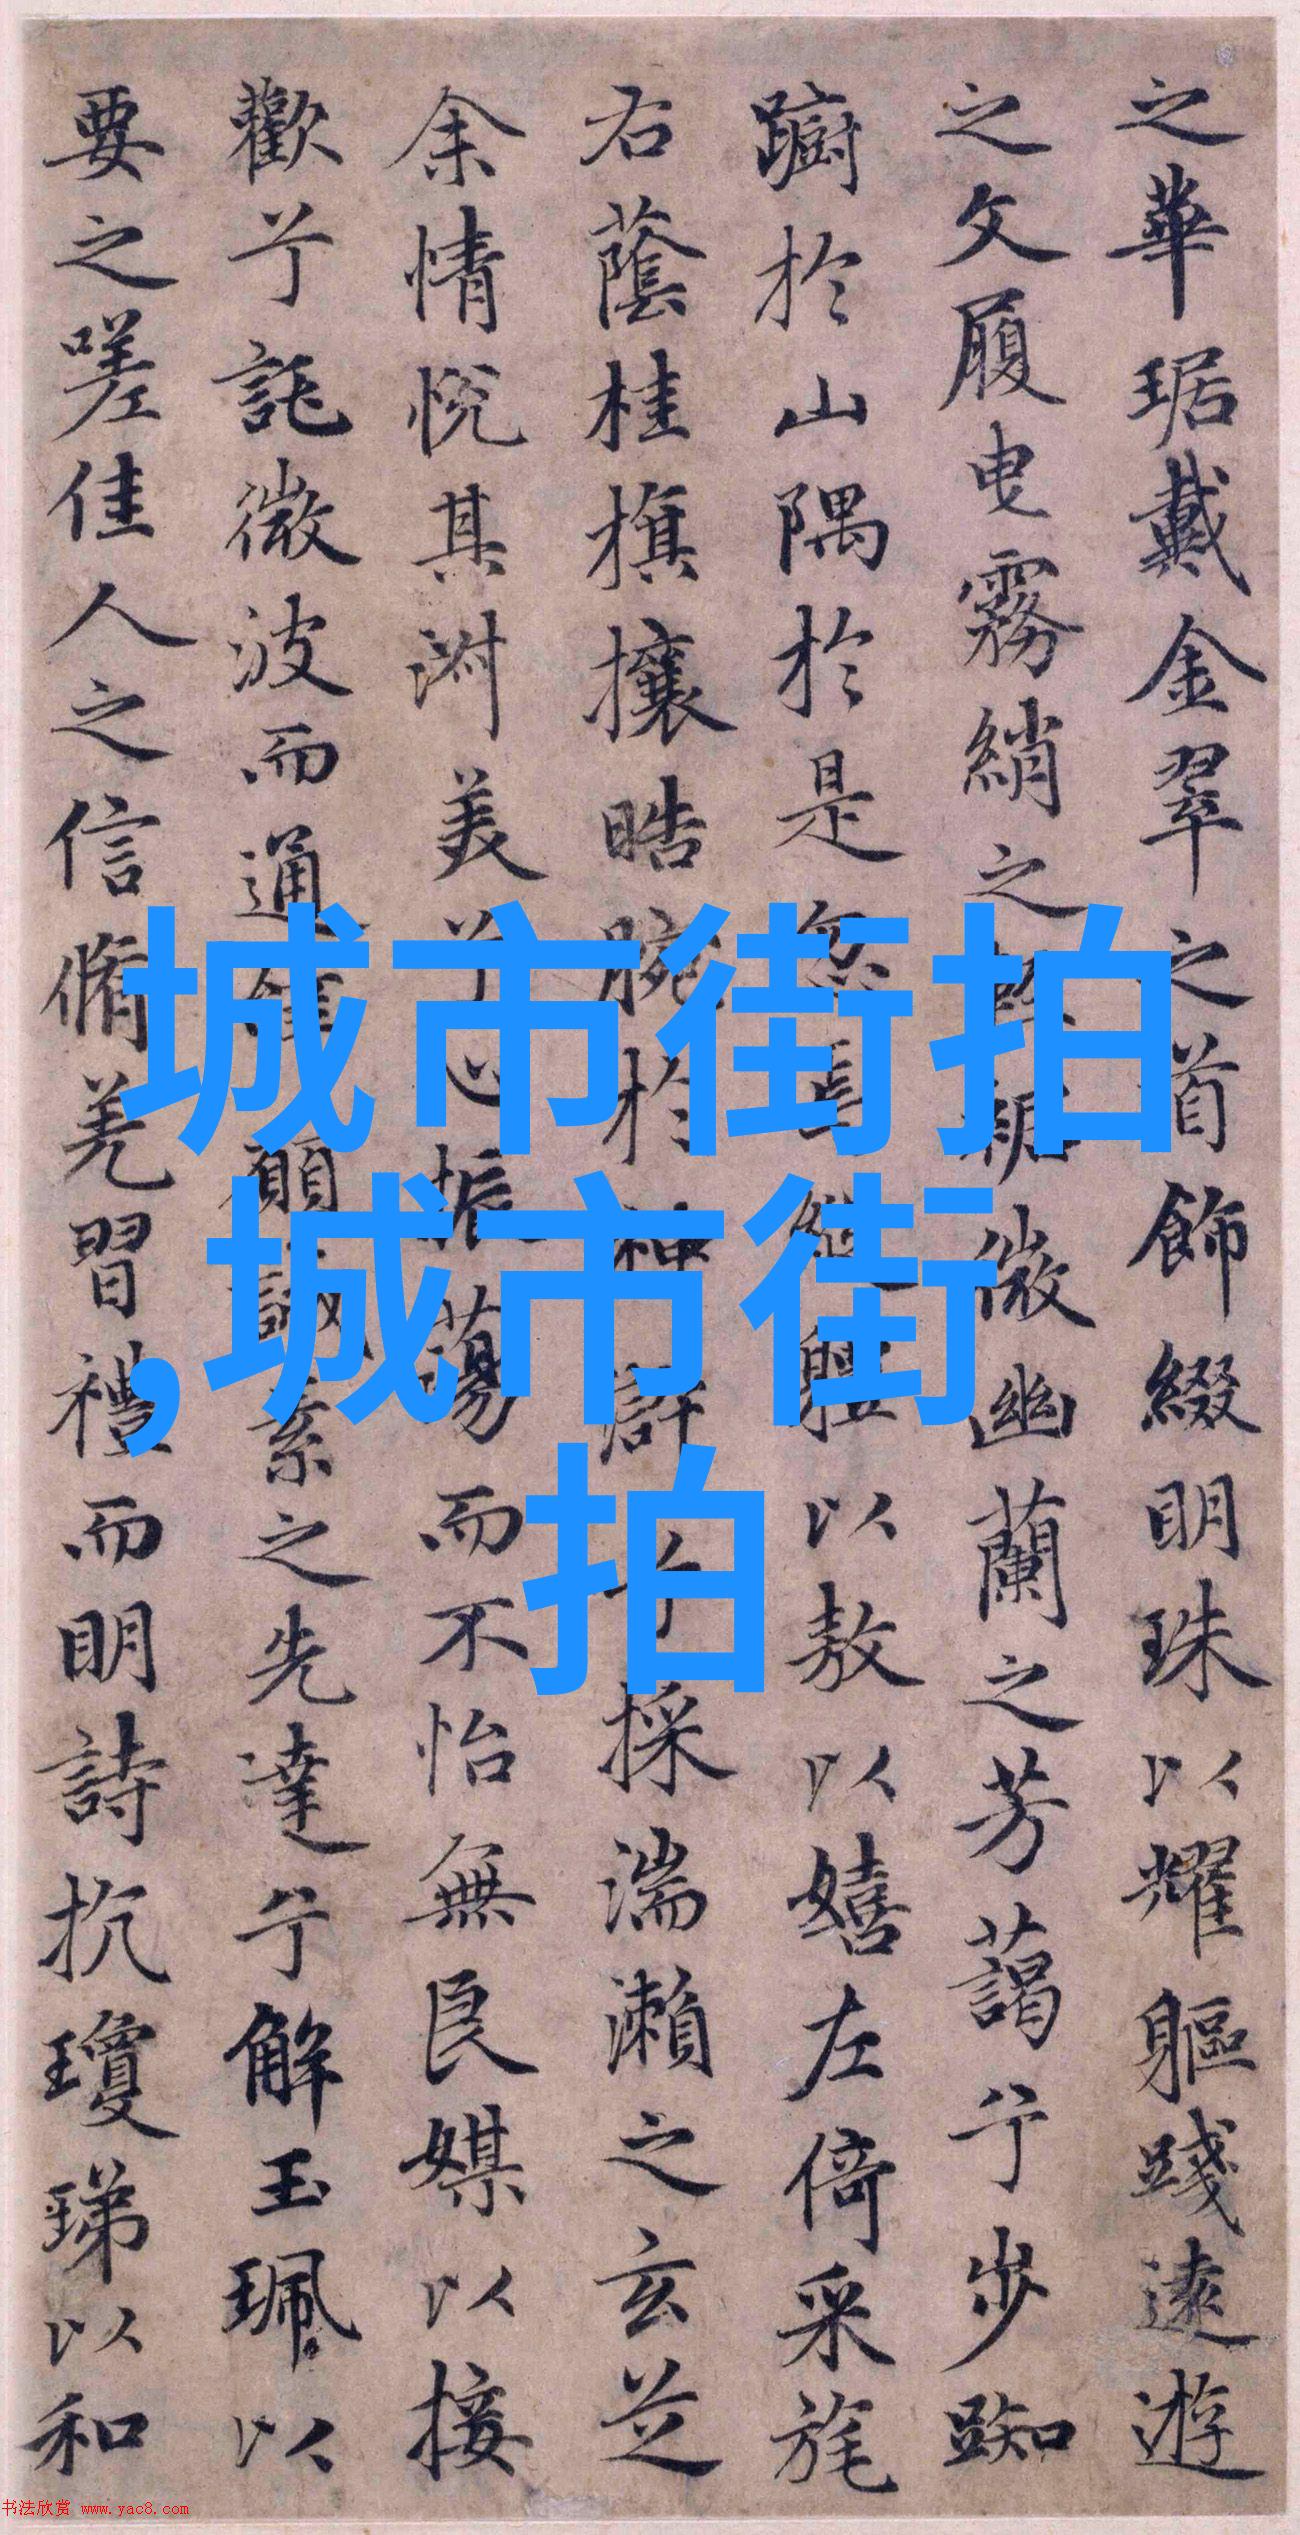 之華琚戴金翠之首飾綴明珠以耀軀踐遠遊
之文履曳霧綃之裾微幽蘭之芳藹兮步踟
蹰於山隅於是忽焉縱體以敖以嬉左倚采旄
右蔭桂旗攘晧腕於神滸兮採湍瀨之玄芝
余情悅其淑美兮心振蕩而不怡無良媒以接
歡兮託微波而通願誠素之先達兮解玉珮以
要之嗟佳人之信脩羌習禮而明詩抗瓊珶以和
城市街拍
,城市街
拍
书法欣赏 www.yac8.com